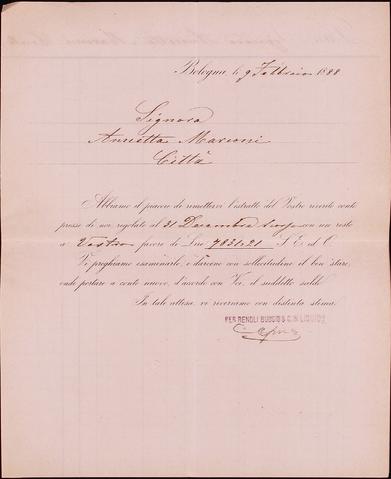 Bologna, li 9 Febbraio 1888
Signora
Annetta Marconi
Città
Abbiamo il piacere di rimettervi l'estratto del Vostro riverito conto
presso di noi regolato al 31 Decembre con un resto
a Vostro favore di Lire 7831.21 S. E. ed O.
Vi preghiamo esaminarlo, e darcene con sollecitudine il ben'stare,
onde portare a conto nuovo, d'accordo con Voi, il suddetto saldo.
In tale attesa, vi riveriamo con distinta stima.
PER RENOLI BUGGIO & C. IN LIQUID.